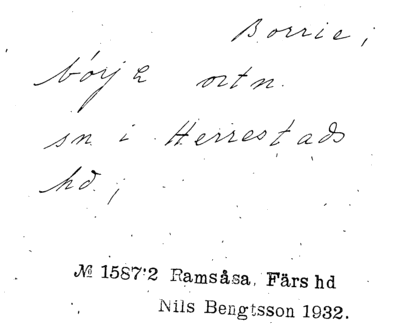 Borrie;
ortn.
sn. i Herrestads
hd.;
№ 1587:2 Ramsåsa, Färs hd
Nils Bengtsson 1932.